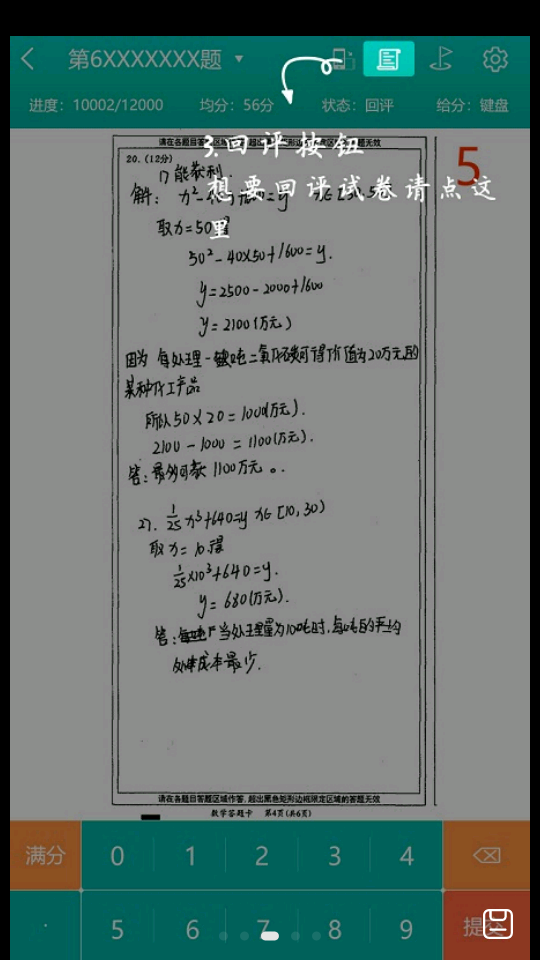 第6XXXXXXX题
进度：10002/12000 均分：56分 状态：回评 给分：键盘
请在各题目答题区域作答，超出黑色矩形边框限定区域的答题无效
3.回评按钮
想要回评试卷请点这里
5
20.(12分)
解：
取x=50时
50²-40×50+1600=y.
y=2500-2000+1600
y=2100(万元)
因为
二氧化碳可得价值为20万元的
某种化工产品
所以50×20=1000(万元).
2100-1000=1100(万元).
答：最多可款1100万元。
27. 1/25x³+640=y x∈[10,30)
取x=10.得
1/25×10³+640=y.
y=680(万元).
答：
当处理量为10吨时，每吨的平均
处理成本最少.
请在各题目答题区域作答，超出黑色矩形边框限定区域的答题无效
数学答题卡 第4页(共6页)
满分 0 1 2 3 4
. 5 6 7 8 9 提交